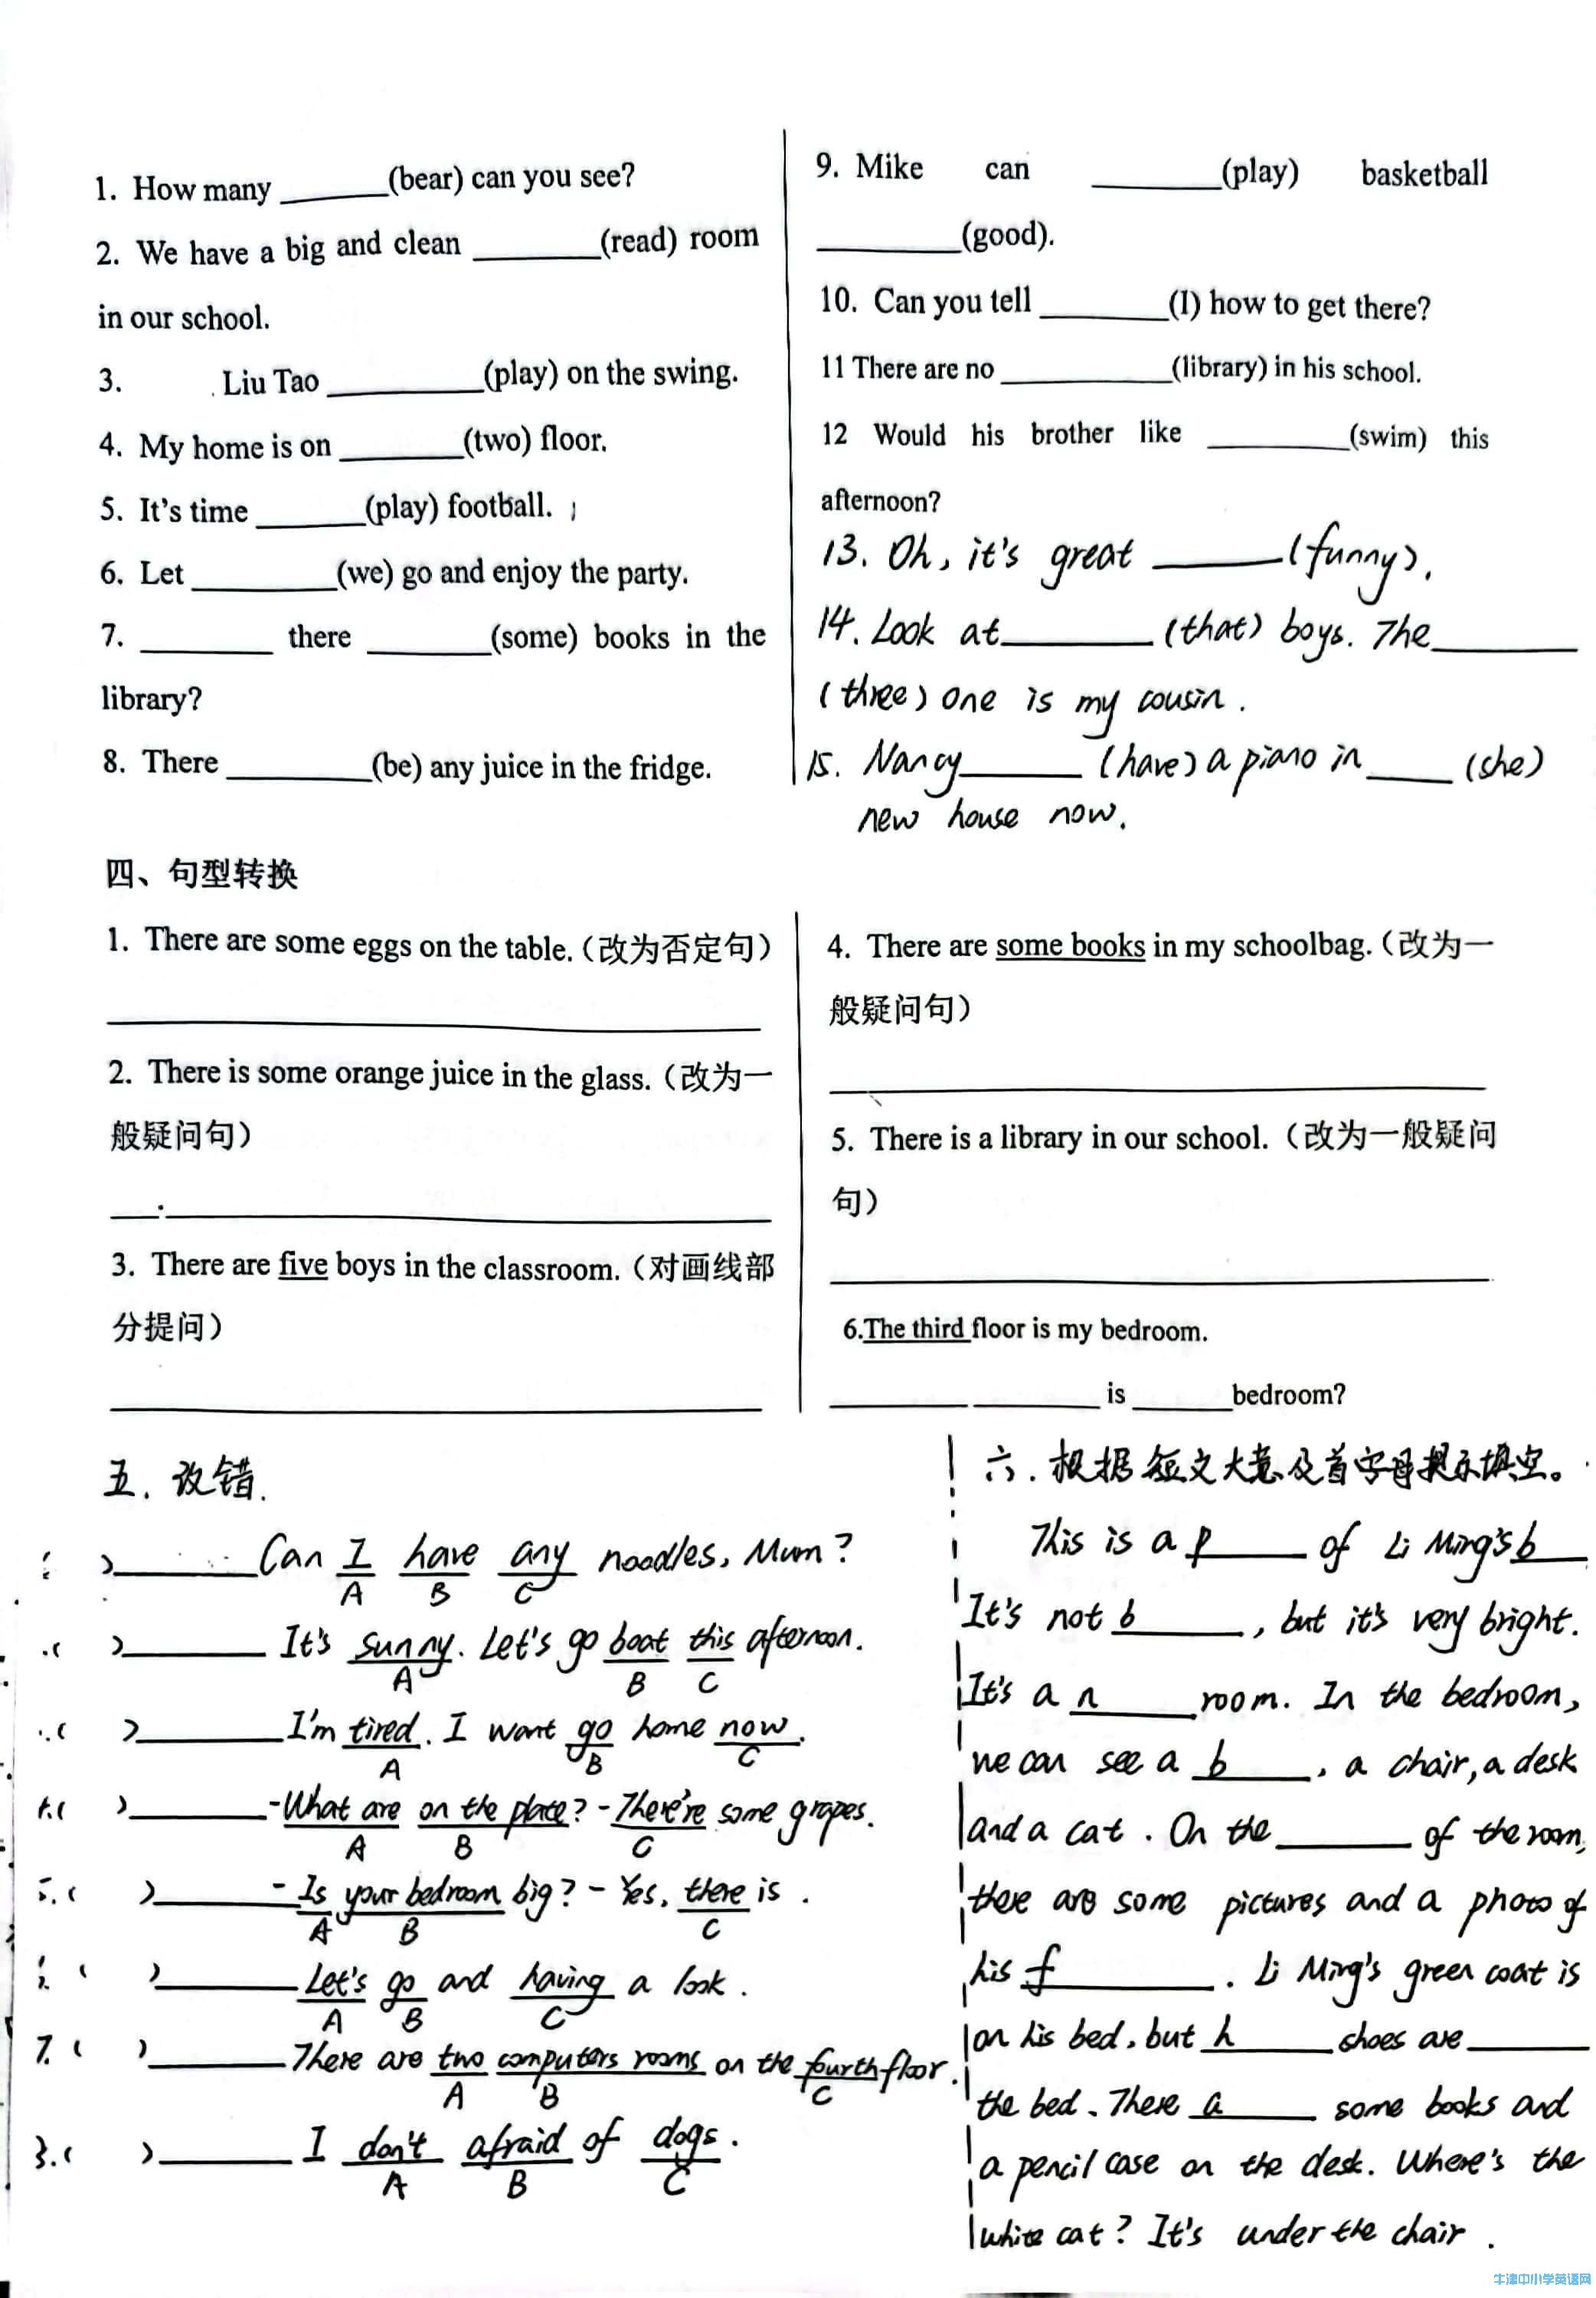 1. How many ______(bear) can you see?
2. We have a big and clean ______(read) room
in our school.
3. Liu Tao ______(play) on the swing.
4. My home is on ______(two) floor.
5. It's time ______(play) football.
6. Let ______(we) go and enjoy the party.
7. ______ there ______(some) books in the
library?
8. There ______(be) any juice in the fridge.
9. Mike can ______(play) basketball
______(good).
10. Can you tell ______(I) how to get there?
11 There are no ______(library) in his school.
12 Would his brother like ______(swim) this
afternoon?
13. Oh, it's great ______(funny).
14. Look at ______ (that) boys. The ______
(three) one is my cousin.
15. Nancy ______ (have) a piano in ______ (she)
new house now.
四、句型转换
1. There are some eggs on the table.（改为否定句）
2. There is some orange juice in the glass.（改为一
般疑问句）
3. There are five boys in the classroom.（对画线部
分提问）
4. There are some books in my schoolbag.（改为一
般疑问句）
5. There is a library in our school.（改为一般疑问
句）
6.The third floor is my bedroom.
______ ______ is ______bedroom?
五. 改错.
( )______ Can I have any noodles, Mum?
A B C
( )______ It's sunny. Let's go boat this afternoon.
A B C
( )______ I'm tired. I want go home now.
A B C
( )______ -What are on the plate? -There're some grapes.
A B C
5. ( )______ - Is your bedroom big? - Yes, there is.
A B C
( )______ Let's go and having a look.
A B C
7. ( )______ There are two computers rooms on the fourth floor.
A B C
( )______ I don't afraid of dogs.
A B C
六. 根据短文大意及首字母提示填空。
This is a p______ of Li Ming's b______
It's not b______, but it's very bright.
It's a n______ room. In the bedroom,
we can see a b______, a chair, a desk
and a cat. On the ______ of the room,
there are some pictures and a photo of
his f______. Li Ming's green coat is
on his bed, but h______ shoes are ______
the bed. There a______ some books and
a pencil case on the desk. Where's the
white cat? It's under the chair.
牛津中小学英语网